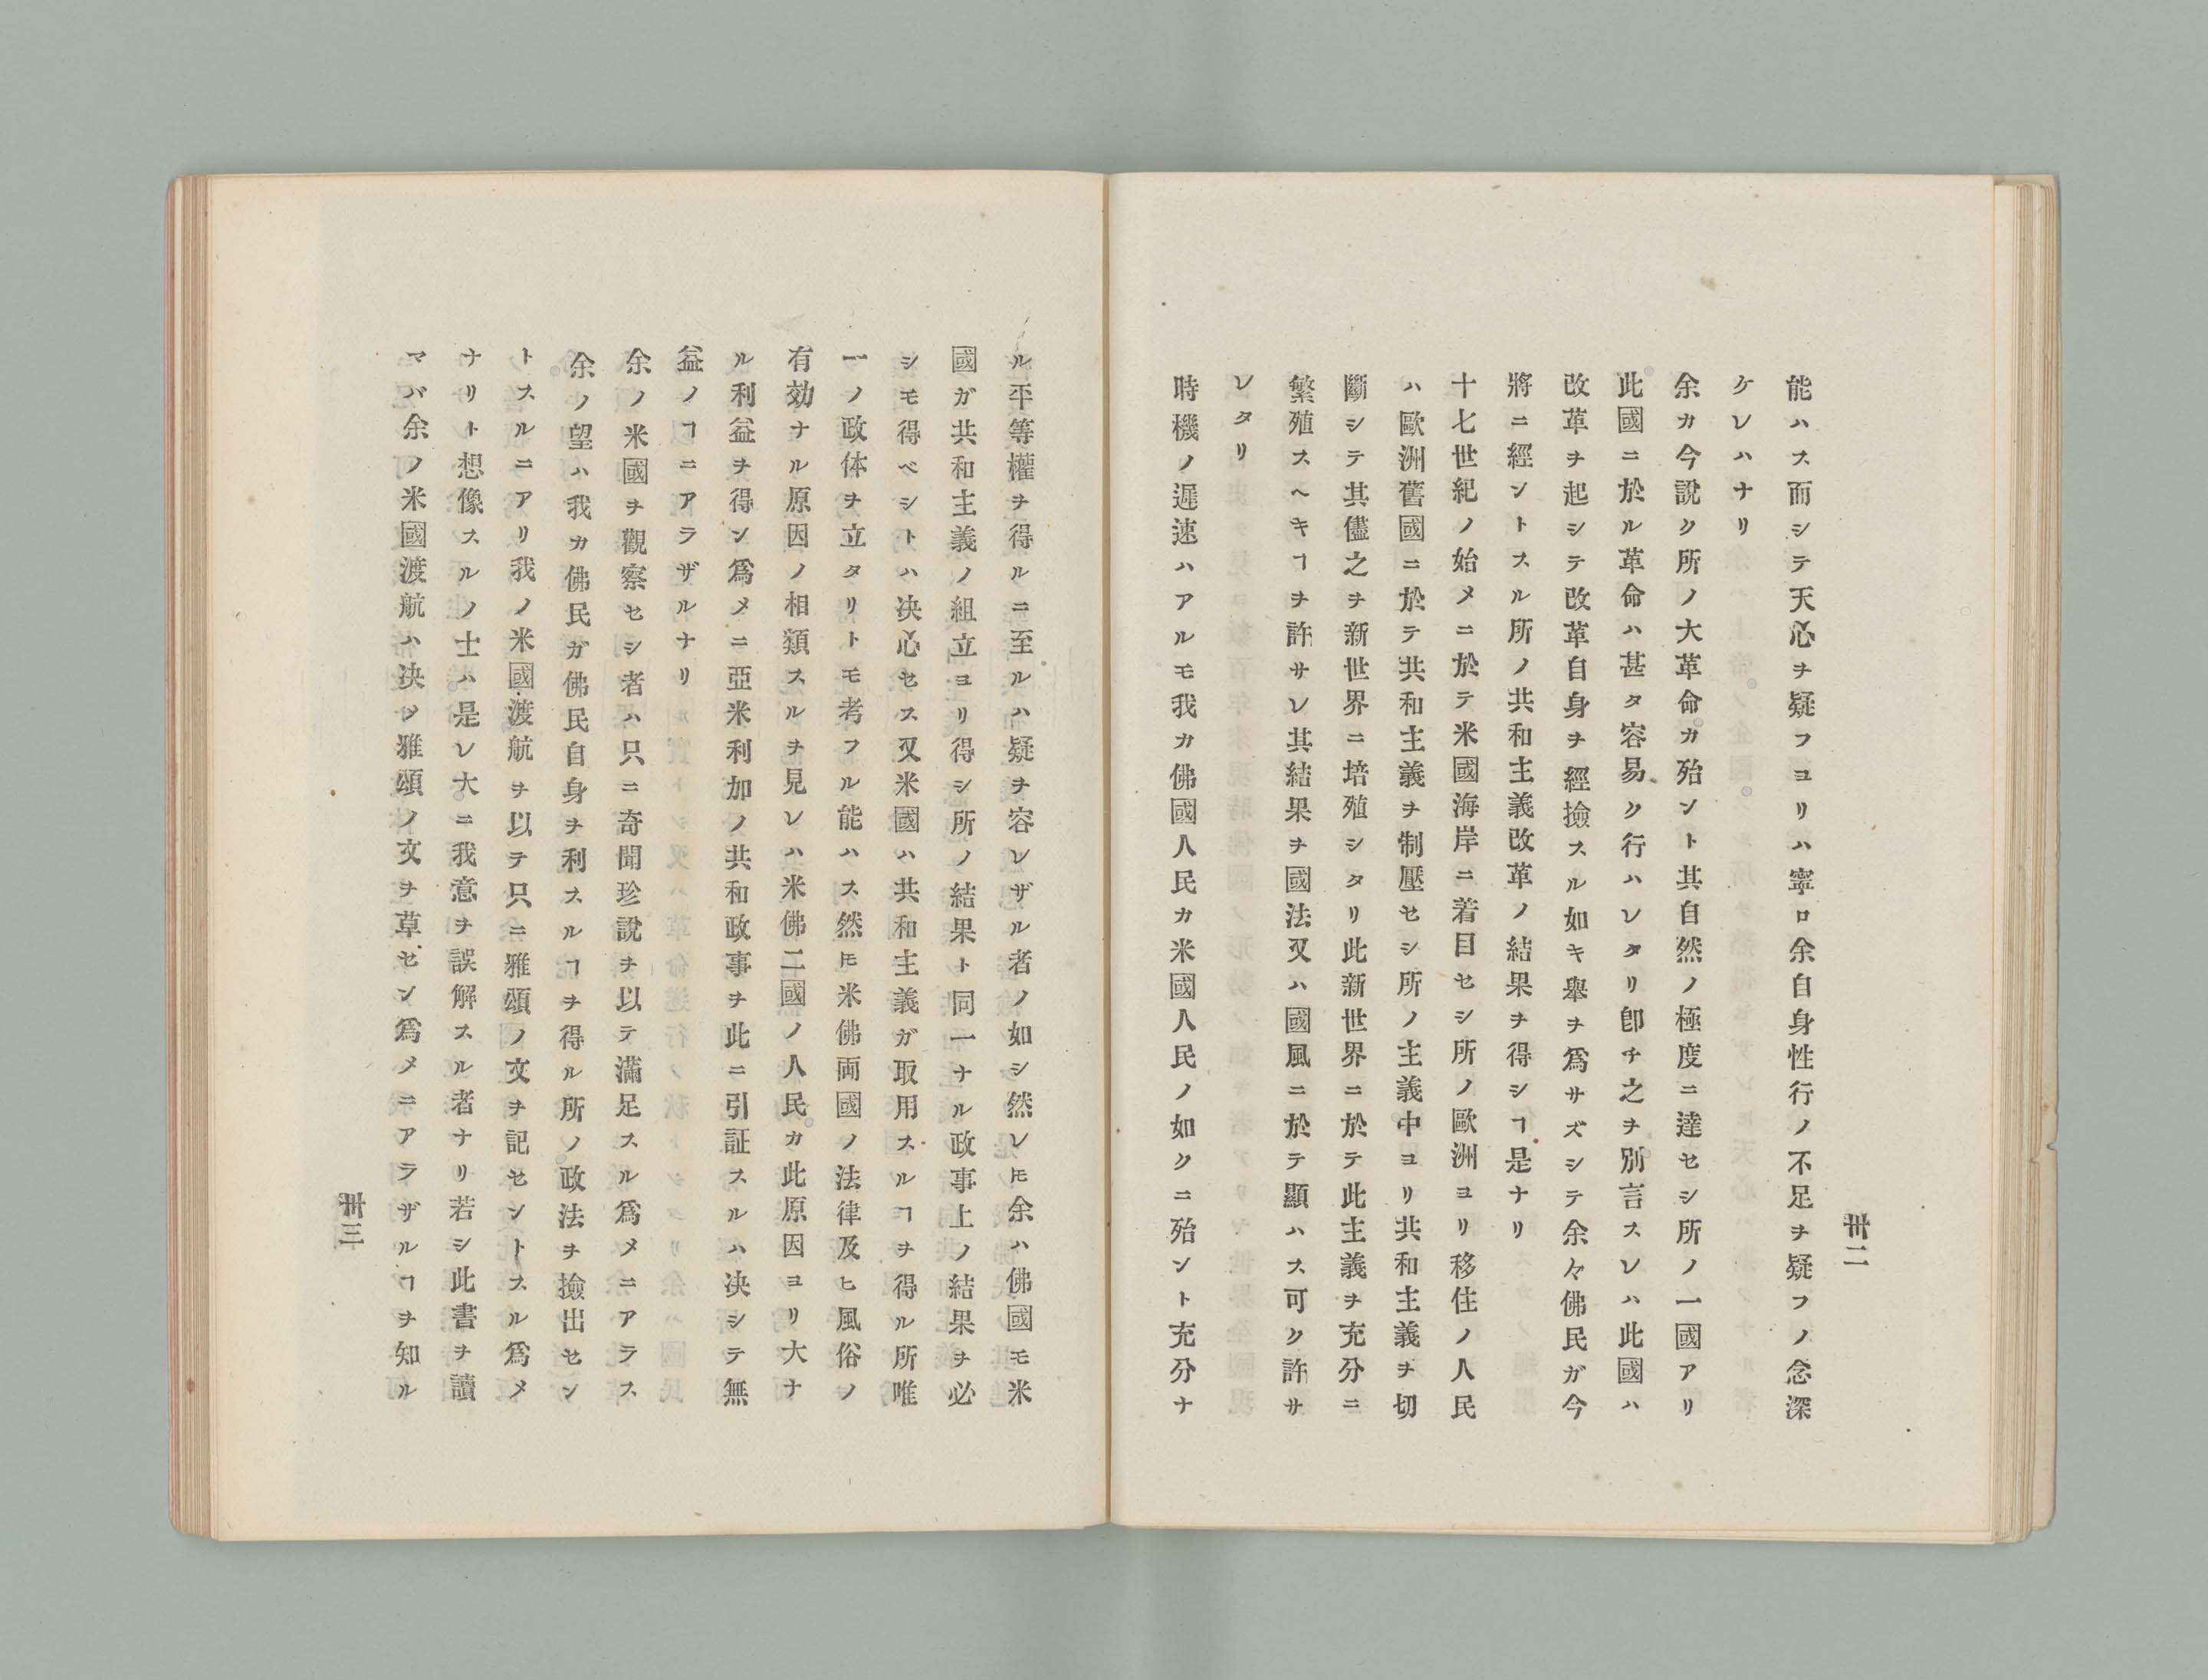 卅二
能ハス而シテ天心ヲ疑フヨリハ寧ロ余自身性行ノ不足ヲ疑フノ念深
ケレハナリ
余カ今說ク所ノ大革命カ殆ント其自然ノ極度ニ達セシ所ノ一國アリ
此國ニ於ル革命ハ甚タ容易ク行ハレタリ卽チ之ヲ別言スレハ此國ハ
改革ヲ起シテ改革自身ヲ經撿スル如キ舉ヲ爲サズシテ余々佛民ガ今
將ニ經ントスル所ノ共和主義改革ノ結果ヲ得シヿ是ナリ
十七世紀ノ始メニ於テ米國海岸ニ着目セシ所ノ歐洲ヨリ移住ノ人民
ハ歐洲舊國ニ於テ共和主義ヲ制壓セシ所ノ主義中ヨリ共和主義ヲ切
斷シテ其儘之ヲ新世界ニ培殖シタリ此新世界ニ於テ此主義ヲ充分ニ
繁殖スヘキヿヲ許サレ其結果ヲ國法又ハ國風ニ於テ顯ハス可ク許サ
レタリ
時機ノ遲速ハアルモ我カ佛國人民カ米國人民ノ如クニ殆ント充分ナ
ル平等權ヲ得ルニ至ルハ疑ヲ容レザル者ノ如シ然レ𪜈余ハ佛國モ米
國ガ共和主義ノ組立ヨリ得シ所ノ結果ト同一ナル政事上ノ結果ヲ必
シモ得ベシトハ決心セス又米國ハ共和主義ガ取用スルヿヲ得ル所唯
一ノ政体ヲ立タリトモ考フル能ハス然𪜈米佛両國ノ法律及ヒ風俗ノ
有効ナル原因ノ相類スルヲ見レハ米佛二國ノ人民カ此原因ヨリ大ナ
ル利益ヲ得ン爲メニ亞米利加ノ共和政事ヲ此ニ引証スルハ決シテ無
益ノヿニアラザルナリ
余ノ米國ヲ觀察セシ者ハ只ニ奇聞珍說ヲ以テ滿足スル爲メニアラス
余ノ望ハ我カ佛民ガ佛民自身ヲ利スルヿヲ得ル所ノ政法ヲ撿出セン
トスルニアリ我ノ米國渡航ヲ以テ只ニ雅頌ノ文ヲ記セントスル爲メ
ナリト想像スルノ士ハ是レ大ニ我意ヲ誤解スル者ナリ若シ此書ヲ讀
マバ余ノ米國渡航ハ決ノ雅頌ノ文ヲ草セン爲メニアラザルヿヲ知ル
卅三